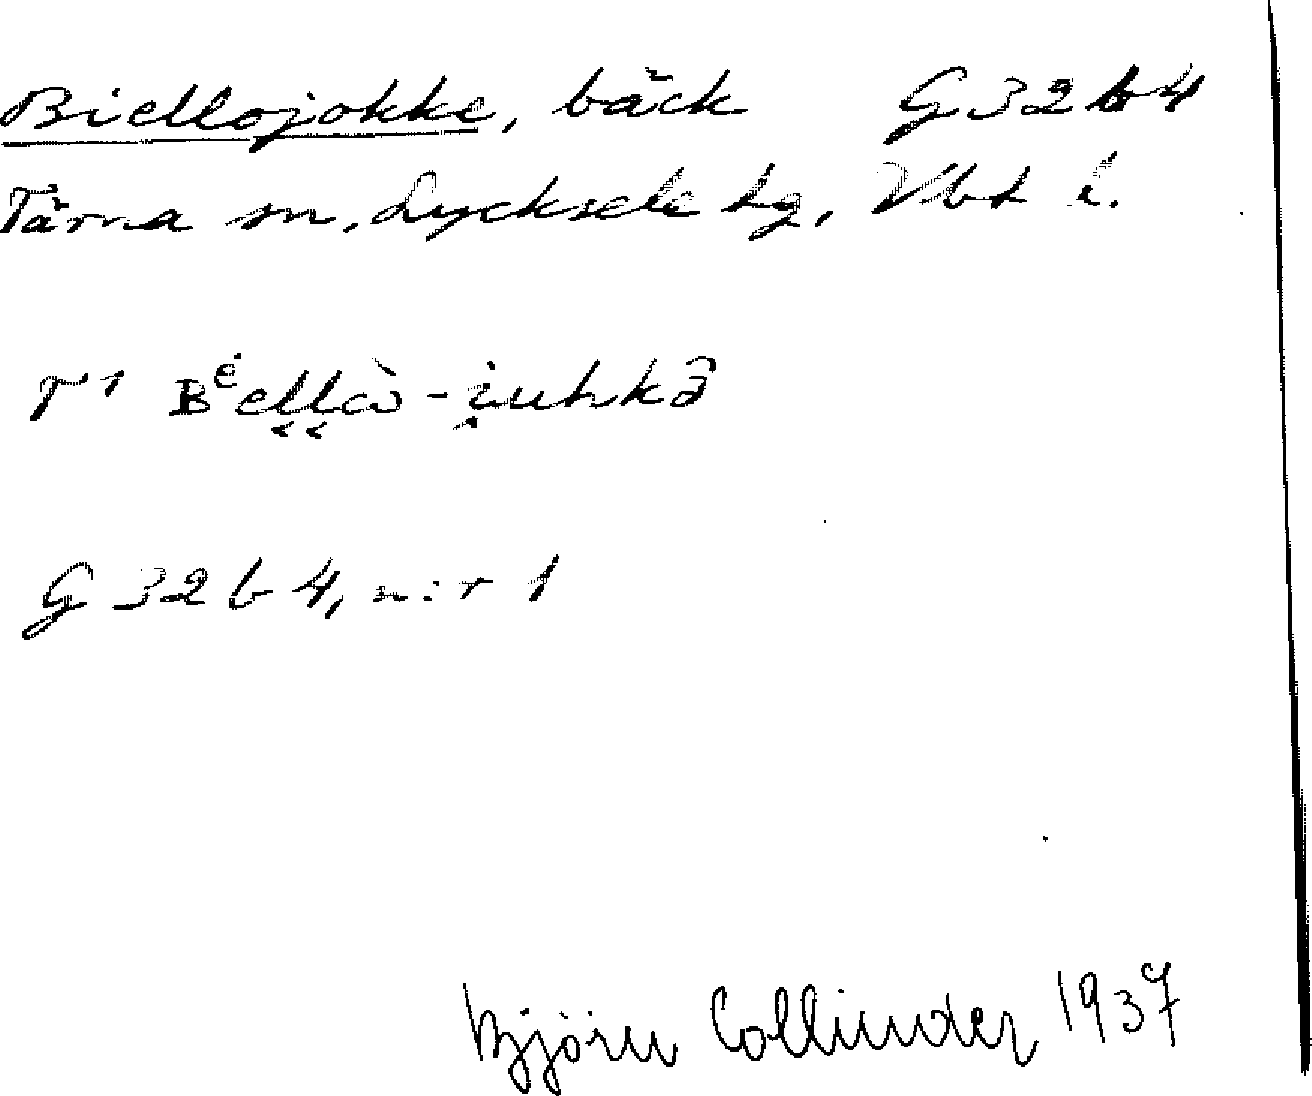 Biellojokke, bäck G32b4
Tärna sn, Lycksele lg, Vbt l.
T1 Bėellὼ-i̭uhkə̂
G32b4, n:r 1
Björn Collinder 1937